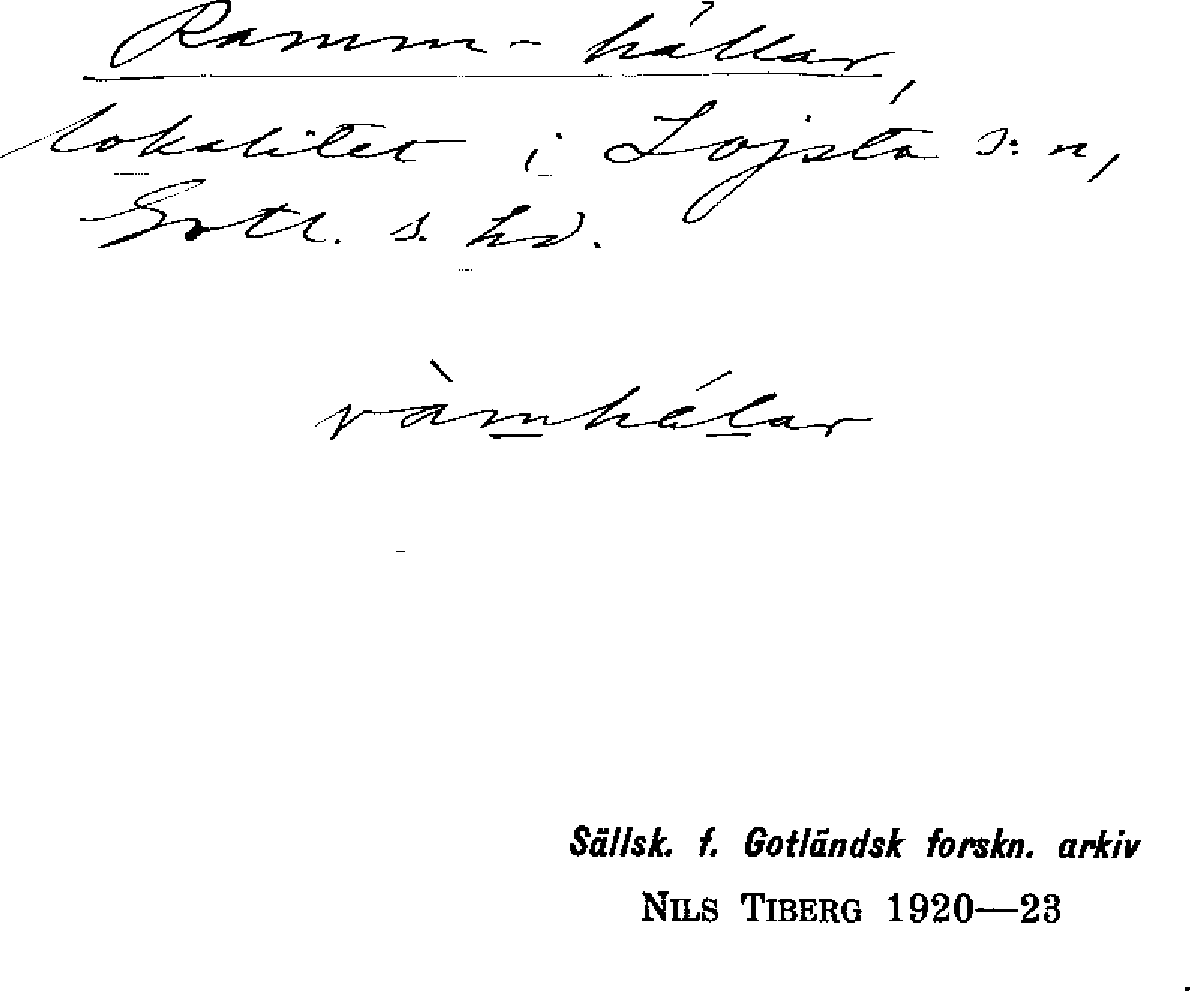 Ramm-hállar,
lokalitet i Lojsta s:n,
Gotl. s. hd.
ràm̲hál̲ar
Sällsk. f. Gotländsk forskn. arkiv
NILS TIBERG 1920—23